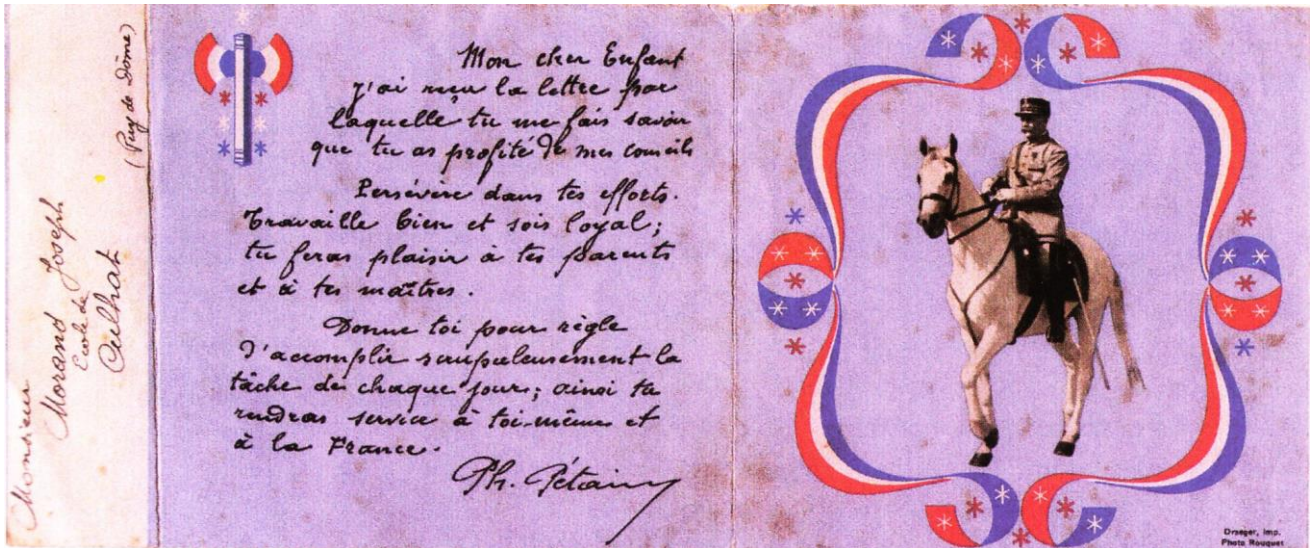 Monsieur
Morand Joseph
Ecole de
Culhat
(Puy de Dôme)
Mon cher Enfant
j'ai reçu la lettre par
laquelle tu me fais savoir
que tu as profité de mes conseils
Persévère dans tes efforts.
Travaille bien et sois loyal;
tu feras plaisir à tes parents
et à tes maîtres.
Donne toi pour règle
d'accomplir scrupuleusement la
tâche de chaque jour; ainsi tu
rendras service à toi-même et
à la France.
Ph. Pétain
Draeger, Imp.
Photo Rouquet